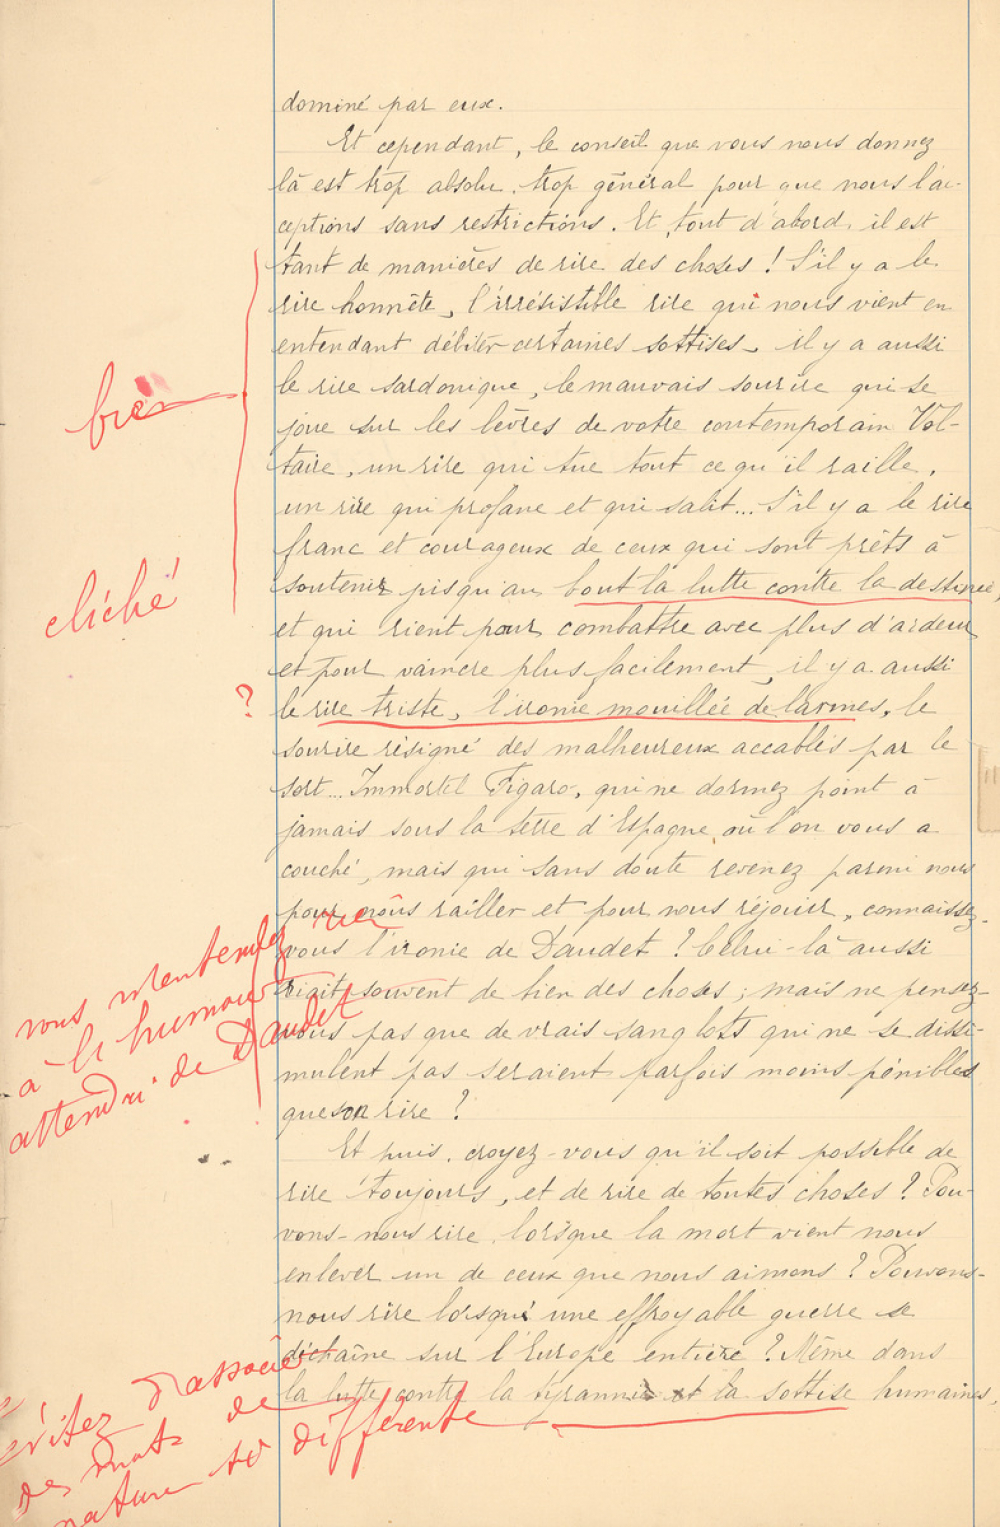 dominé par eux.
Et cependant, le conseil que vous nous donnez
là est trop absolu, trop général pour que nous l'ac-
ceptions sans restrictions. Et, tout d'abord, il est
tant de manières de rire des choses ! S'il y a le
rire honnête, l'irrésistible rire qui nous vient en
entendant débiter certaines sottises, il y a aussi
bien
le rire sardonique, le mauvais sourire qui se
joue sur les lèvres de votre contemporain Vol-
taire, un rire qui tue tout ce qu'il raille,
un rire qui profane et qui salit... S'il y a le rire
franc et courageux de ceux qui sont prêts à
cliché
soutenir jusqu'au bout la lutte contre la destinée,
et qui rient pour combattre avec plus d'ardeur
et pour vaincre plus facilement, il y a aussi
?
le rire triste, l'ironie mouillée de larmes, le
sourire résigné des malheureux accablés par le
sort... Immortel Figaro, qui ne dormez point à
jamais sous la terre d'Espagne où l'on vous a
couché, mais qui sans doute revenez parmi nous
pour nous railler et pour nous réjouir, connaissez-
vous l'ironie de Daudet ? Celui-là aussi
riait souvent de bien des choses ; mais ne pensez-
vous pas que de vrais sanglots qui ne se dissi-
mulent pas seraient parfois moins pénibles
que son rire ?
vous n'entendez rien
à l'humour
attendri de Daudet
Et puis, croyez-vous qu'il soit possible de
rire toujours, et de rire de toutes choses ? Pou-
vons-nous rire, lorsque la mort vient nous
enlever un de ceux que nous aimons ? Pouvons-
nous rire lorsqu'une effroyable guerre se
déchaîne sur l'Europe entière ? Même dans
la lutte contre la tyrannie et la sottise humaines,
évitez d'associer
des mots de
nature si différente